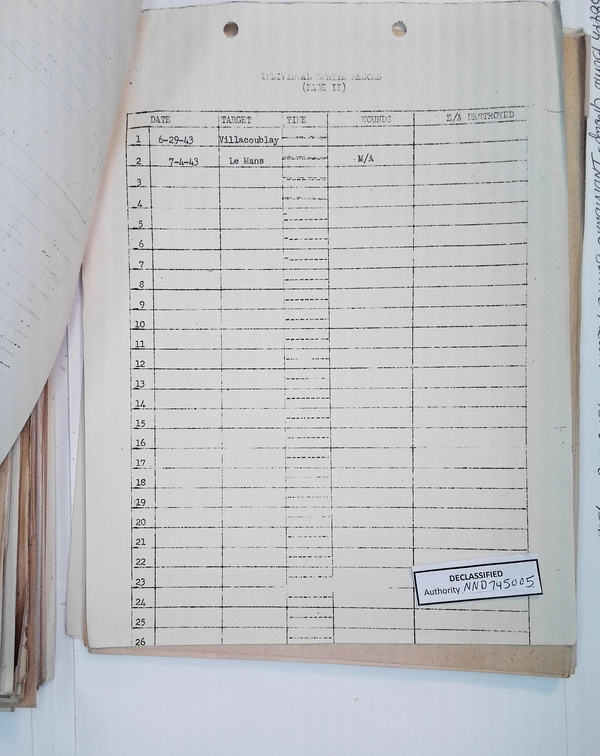 INDIVIDUAL SORTIE RECORD
(PAGE II)
DATE TARGET TIME WOUNDS E/A DESTROYED
1 6-29-43 Villacoublay
2 7-4-43 Le Mans M/A
3
4
5
6
7
8
9
10
11
12
13
14
15
16
17
18
19
20
21
22
23
24
25
26
DECLASSIFIED
Authority NND745005